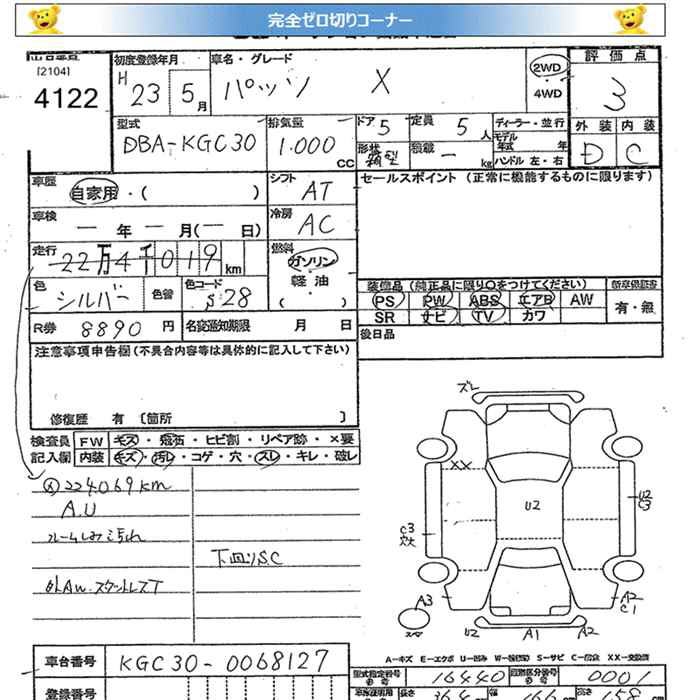 完全ゼロ切りコーナー
[2104]
4122
初度登録年月 H 23 5月
車名・グレード パッソ X
2WD
4WD
評価点
3
外装 内装
D C
型式 DBA-KGC30
排気量 1.000 CC
ドア 5
定員 5人
形状 箱型
積載 ー kg
ディーラー・並行
モデル年式 年
ハンドル 左・右
車歴 自家用・( )
シフト AT
セールスポイント (正常に機能するものに限ります)
車検 ー年ー月(ー日)
冷房 AC
走行 22万4千019 km
燃料 ガソリン・軽油・( )
色 シルバー 色替
色コード S28
装備品 (純正品に限り○をつけてください)
新車保証書
PS PW ABS エアB AW
SR ナビ TV カワ
有・無
R券 8890円
名変通知期限 月 日
後日品
注意事項申告欄(不具合内容等は具体的に記入して下さい)
修復歴 有 〔箇所 〕
検査員記入欄
FW キズ・飛石・ヒビ割・リペア跡・×要
内装 キズ・汚レ・コゲ・穴・スレ・キレ・破レ
224069km
A.U
ルームしみ汚れ
下回りS.C
外AW・スタットレスT
ズレ
XX
U2
U2
C3
C3
A3
U2
A1
A2
A2
C1
A-キズ E-エクボ U-凹み W-波(板) S-サビ C-腐食 XX-交換済
車台番号 KGC30-0068127
登録番号
型式指定番号 16440
類別区分番号 0001
長さ 364
幅 166